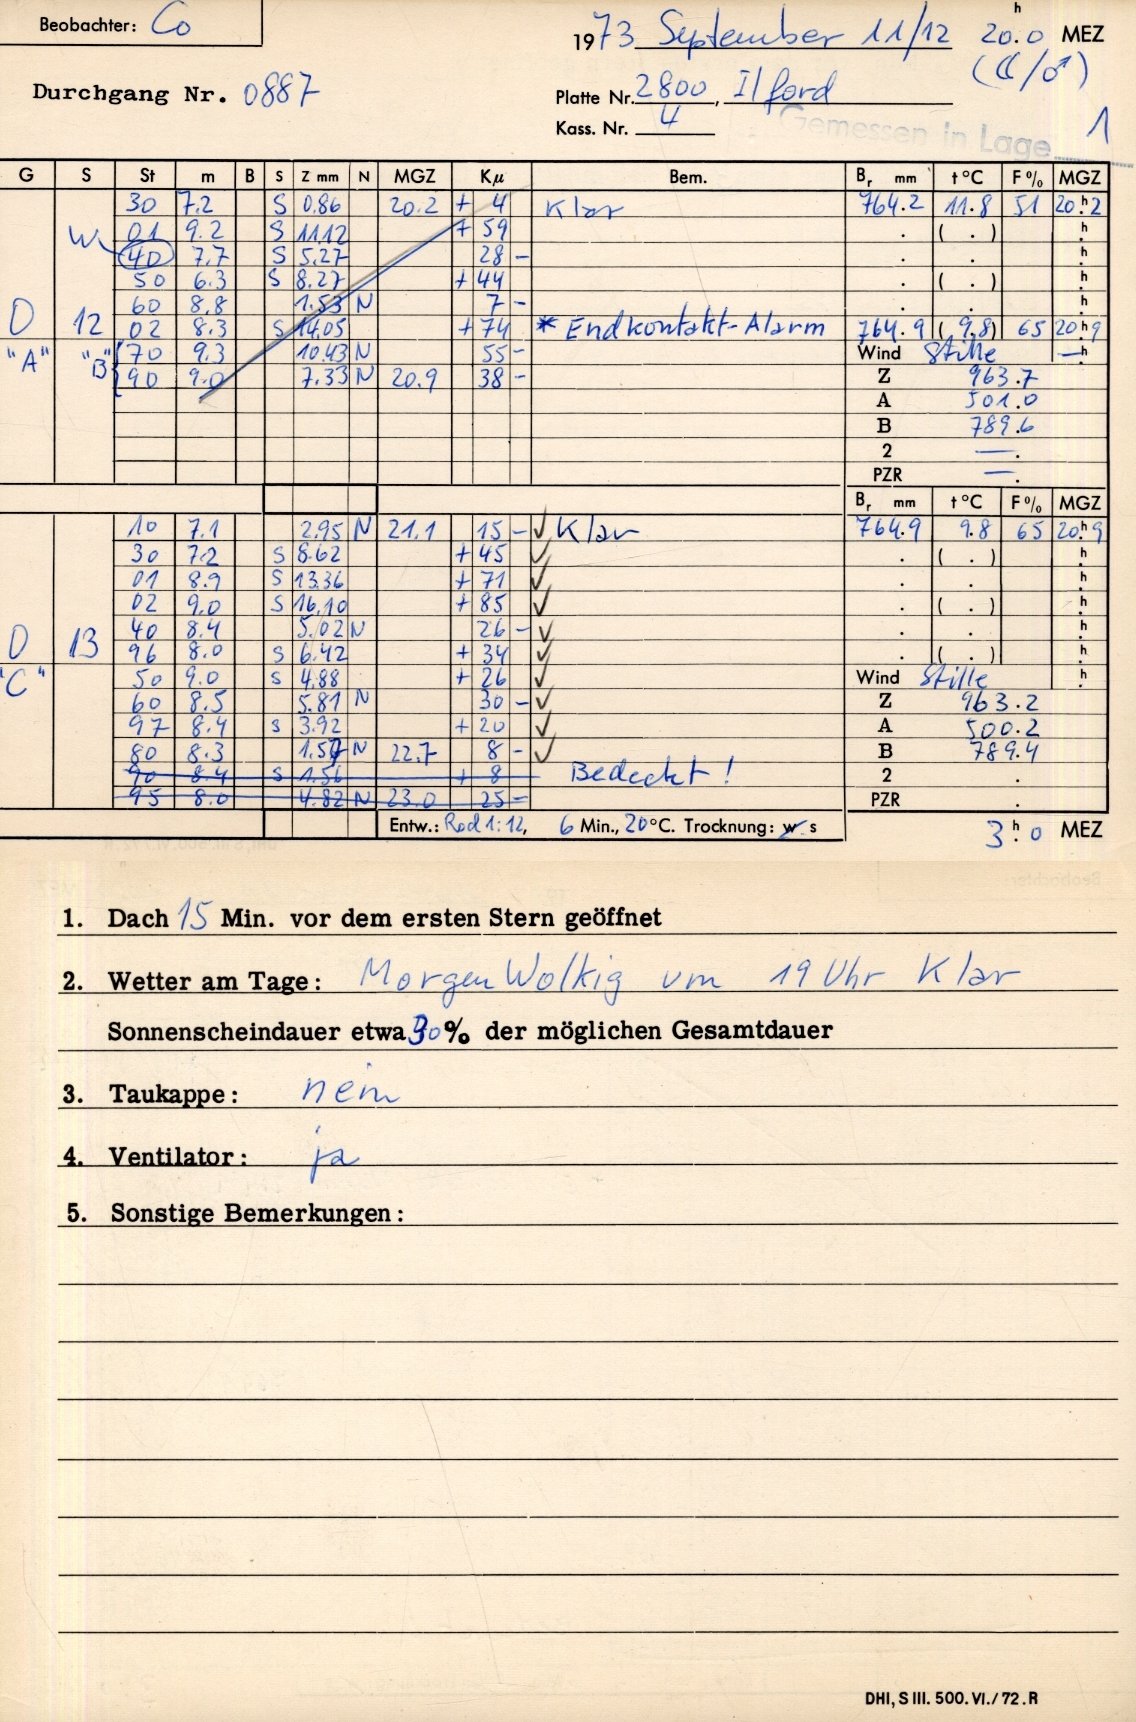 Beobachter: Co
1973 September 11/12 20.ʰ0 MEZ
(☾/♂)
Durchgang Nr. 0887
Platte Nr. 2800, Ilford
Kass. Nr. 4
Gemessen in Lage 1
G S St m B S Z mm N MGZ Kμ Bem. Bᵣ mm t°C F% MGZ
30 7.2 S 0.86 20.2 + 4 Klar 764.2 11.8 51 20ʰ.2
W 01 9.2 S 11.12 + 59 . ( . ) ʰ.
40 7.7 S 5.27 28 - . . ʰ.
50 6.3 S 8.27 + 44 . ( . ) ʰ.
60 8.8 1.53 N 7 - . . ʰ.
D 12 02 8.3 S 14.05 + 74 * Endkontakt-Alarm 764.9 (9.8) 65 20ʰ.9
"A" "B" 70 9.3 10.43 N 55 - Wind Stille — ʰ.
90 9.0 7.33 N 20.9 38 - Z 963.7
A 501.0
B 789.6
2 — .
PZR — .
Bᵣ mm t°C F% MGZ
10 7.1 2.95 N 21.1 15 - ✓ Klar 764.9 9.8 65 20ʰ.9
30 7.2 S 8.62 + 45 ✓ . ( . ) ʰ.
01 8.9 S 13.36 + 71 ✓ . . ʰ.
02 9.0 S 16.10 + 85 ✓ . ( . ) ʰ.
40 8.4 5.02 N 26 - ✓ . . ʰ.
D 13 96 8.0 S 6.42 + 34 ✓ . ( . ) ʰ.
"C" 50 9.0 S 4.88 + 26 ✓ Wind Stille ʰ.
60 8.5 5.81 N 30 - ✓ Z 963.2
97 8.4 S 3.92 + 20 ✓ A 500.2
80 8.3 1.57 N 22.7 8 - ✓ B 789.4
90 8.4 S 1.56 + 8 Bedeckt! 2 .
95 8.0 4.82 N 23.0 25 - PZR .
Entw.: Rod 1:12, 6 Min., 20°C. Trocknung: w s 3ʰ.0 MEZ
1. Dach 15 Min. vor dem ersten Stern geöffnet
2. Wetter am Tage: Morgen Wolkig um 19 Uhr Klar
Sonnenscheindauer etwa 30% der möglichen Gesamtdauer
3. Taukappe: nein
4. Ventilator: ja
5. Sonstige Bemerkungen:
DHI, S III. 500. VI./72. R